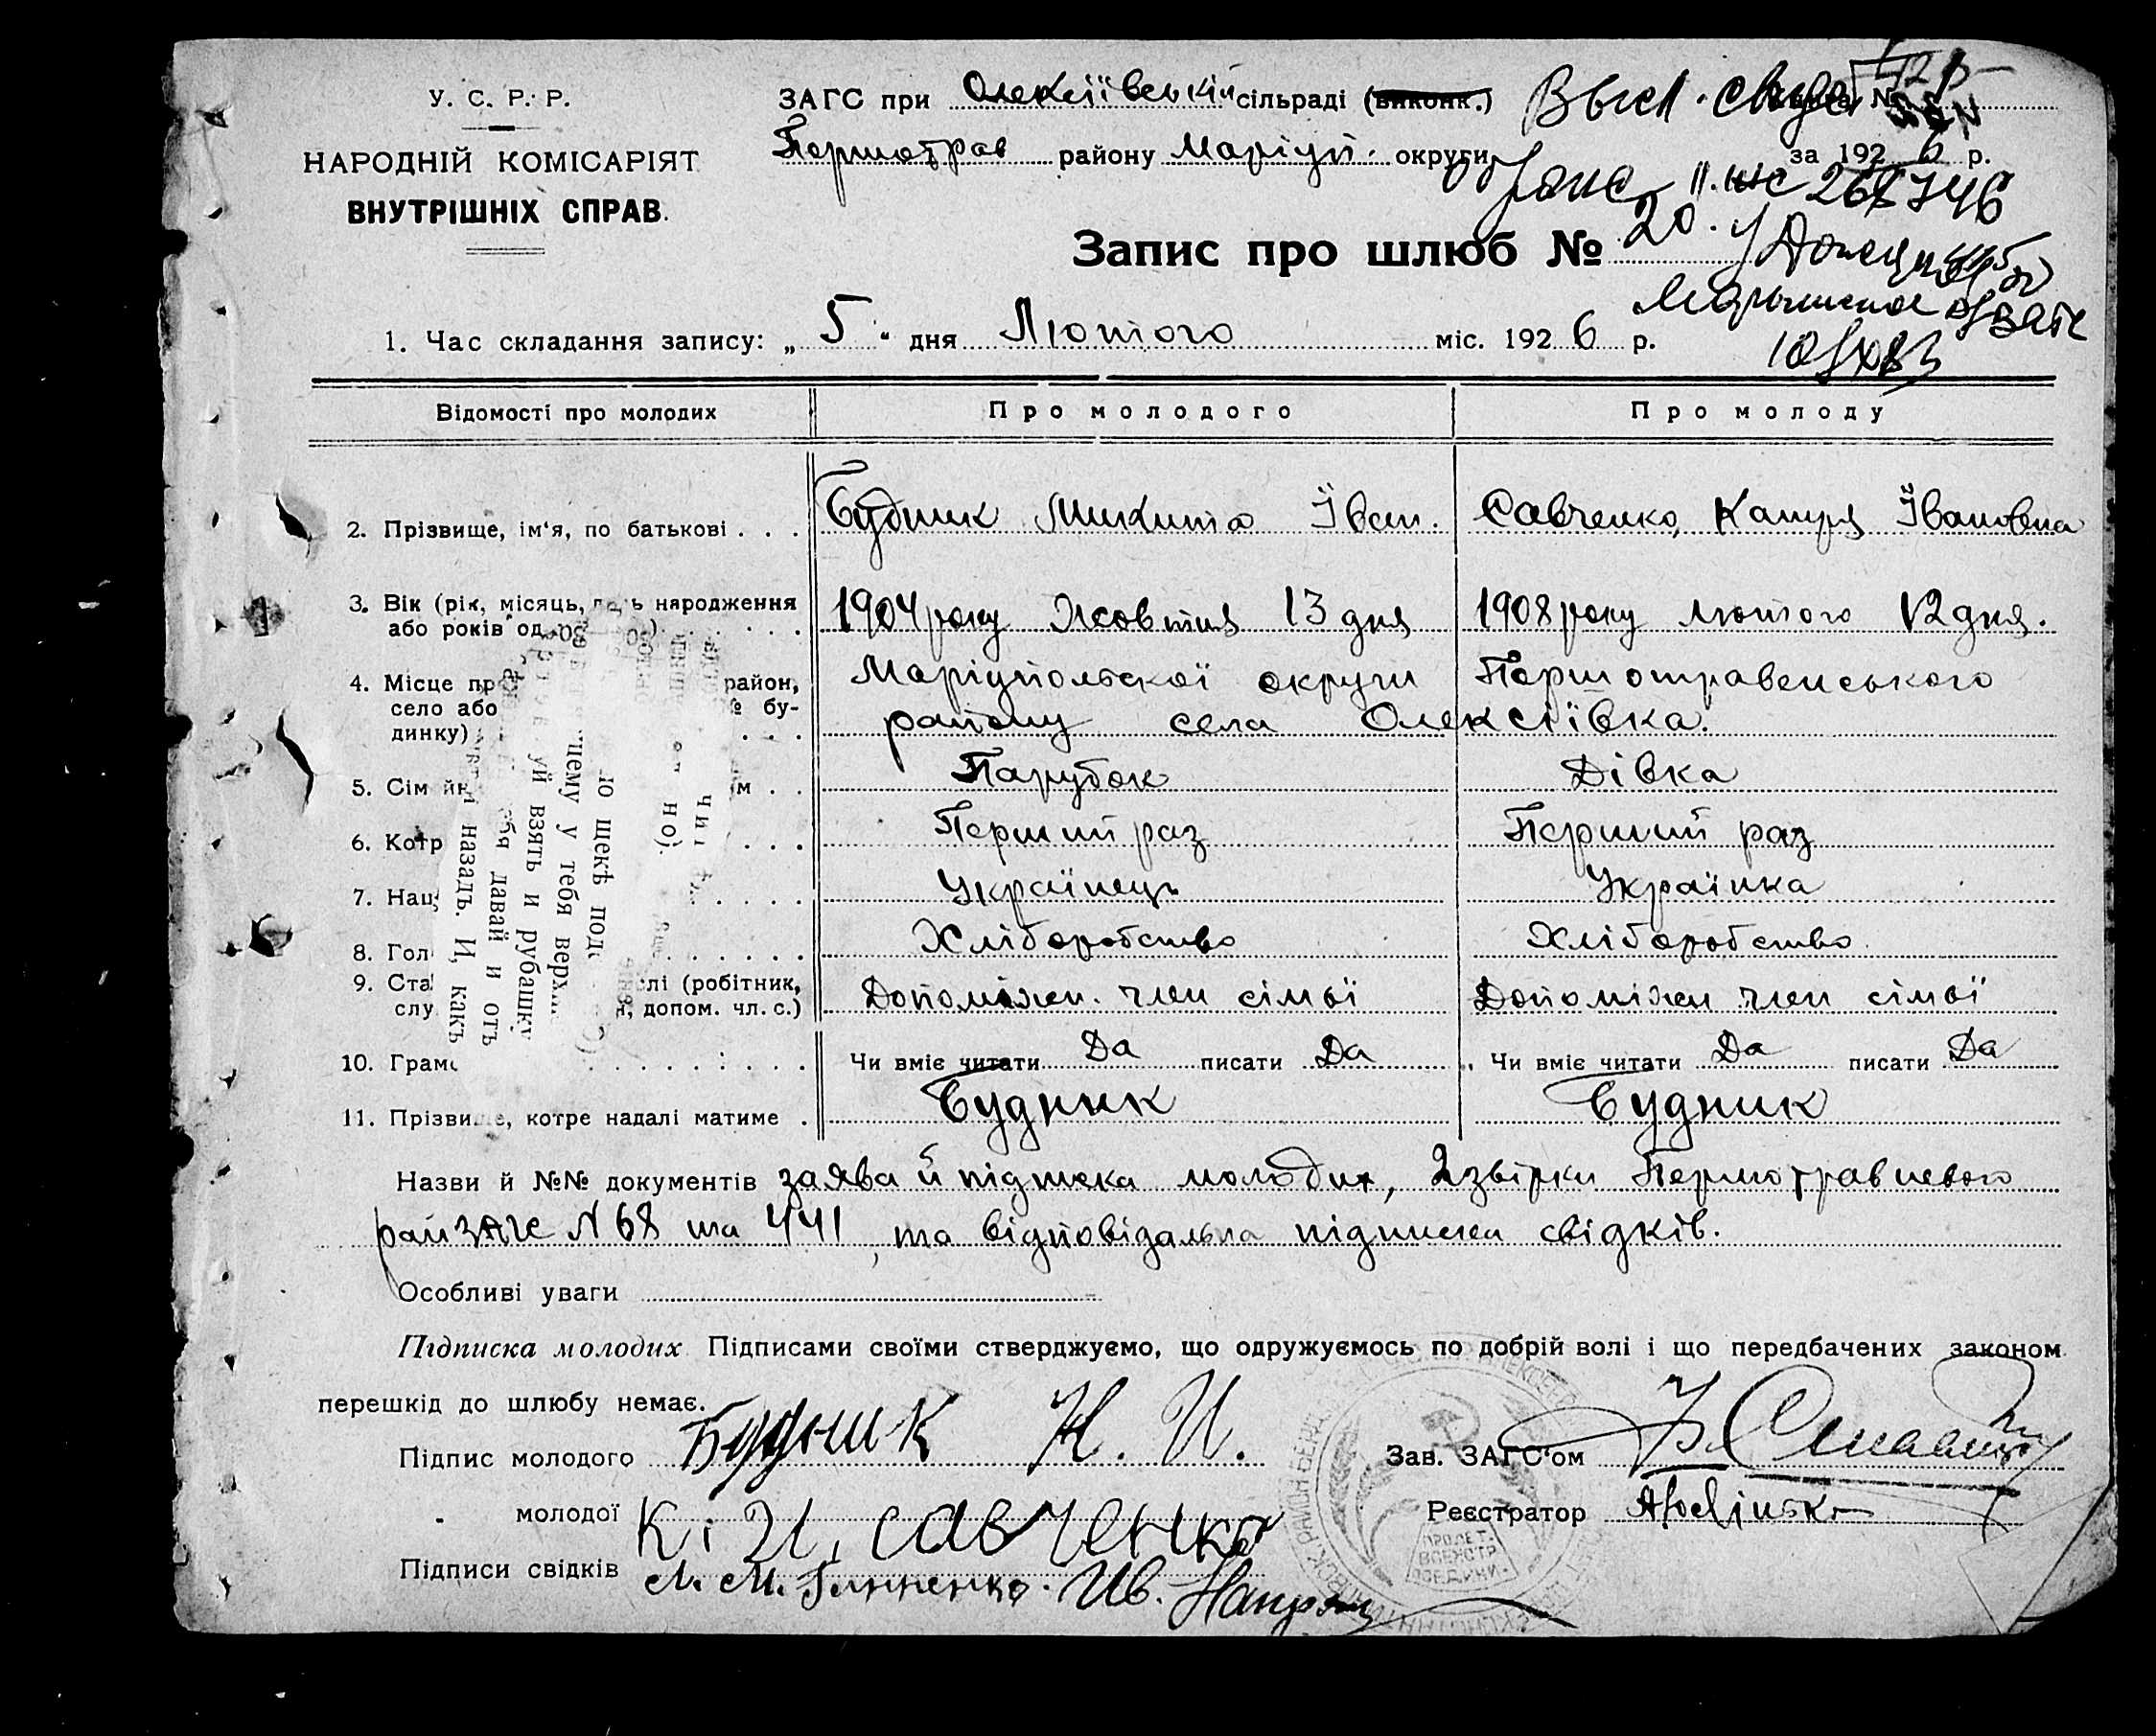 У. С. Р. Р.
НАРОДНІЙ КОМІСАРІЯТ
ВНУТРІШНІХ СПРАВ.
ЗАГС при Олексіївській сільраді (виконк.)
Першотрав району Маріуп. округи
за 1926 р.
Высл. свид.
II. 267746
Запис про шлюб № 20.
1. Час складання запису: „5" дня Лютого міс. 1926 р.
Відомості про молодих Про молодого Про молоду
2. Прізвище, ім'я, по батькові . . . Будник Микита Їван. Савченко, Катря Ївановна
3. Вік (рік, місяць, день народження
або років од 1904 року Жовтня 13 дня 1908 року лютого 12 дня.
4. Місце район, Маріупольскої округи Першотравенського
село або № бу-
динку) району села Олексіївка.
5. Сімейн Парубок Дівка
6. Котр Перший раз Перший раз
7. Нац Українець Українка
8. Гол Хліборобство Хліборобство
9. Ста лі (робітник,
слу допом. чл. с.) Допоміжн. член сімьї Допоміжн член сімьї
10. Грамо Чи вміє читати Да писати Да Чи вміє читати Да писати Да
11. Прізвище, котре надалі матиме . Будник Будник
ю щекѣ под
у тебя верх
уй взять и рубашку
давай и отъ
назадъ. И, какъ
Назви й №№ документів заява й підписка молодих, 2 звірки Першотравневого
райЗАГС N 68 та 441, та відповідальна підписка свідків.
Особливі уваги
Підписка молодих Підписами своїми стверджуємо, що одружуємось по добрій волі і що передбачених законом
перешкід до шлюбу немає.
Підпис молодого Будник Н. И.
Зав. ЗАГС'ом
„ молодої К. И. Савченко
Реєстратор
Підписи свідків М. М. Ив.
ПРОЛЕТ.
ВСЕХ СТР
ПОЕДИНИ.